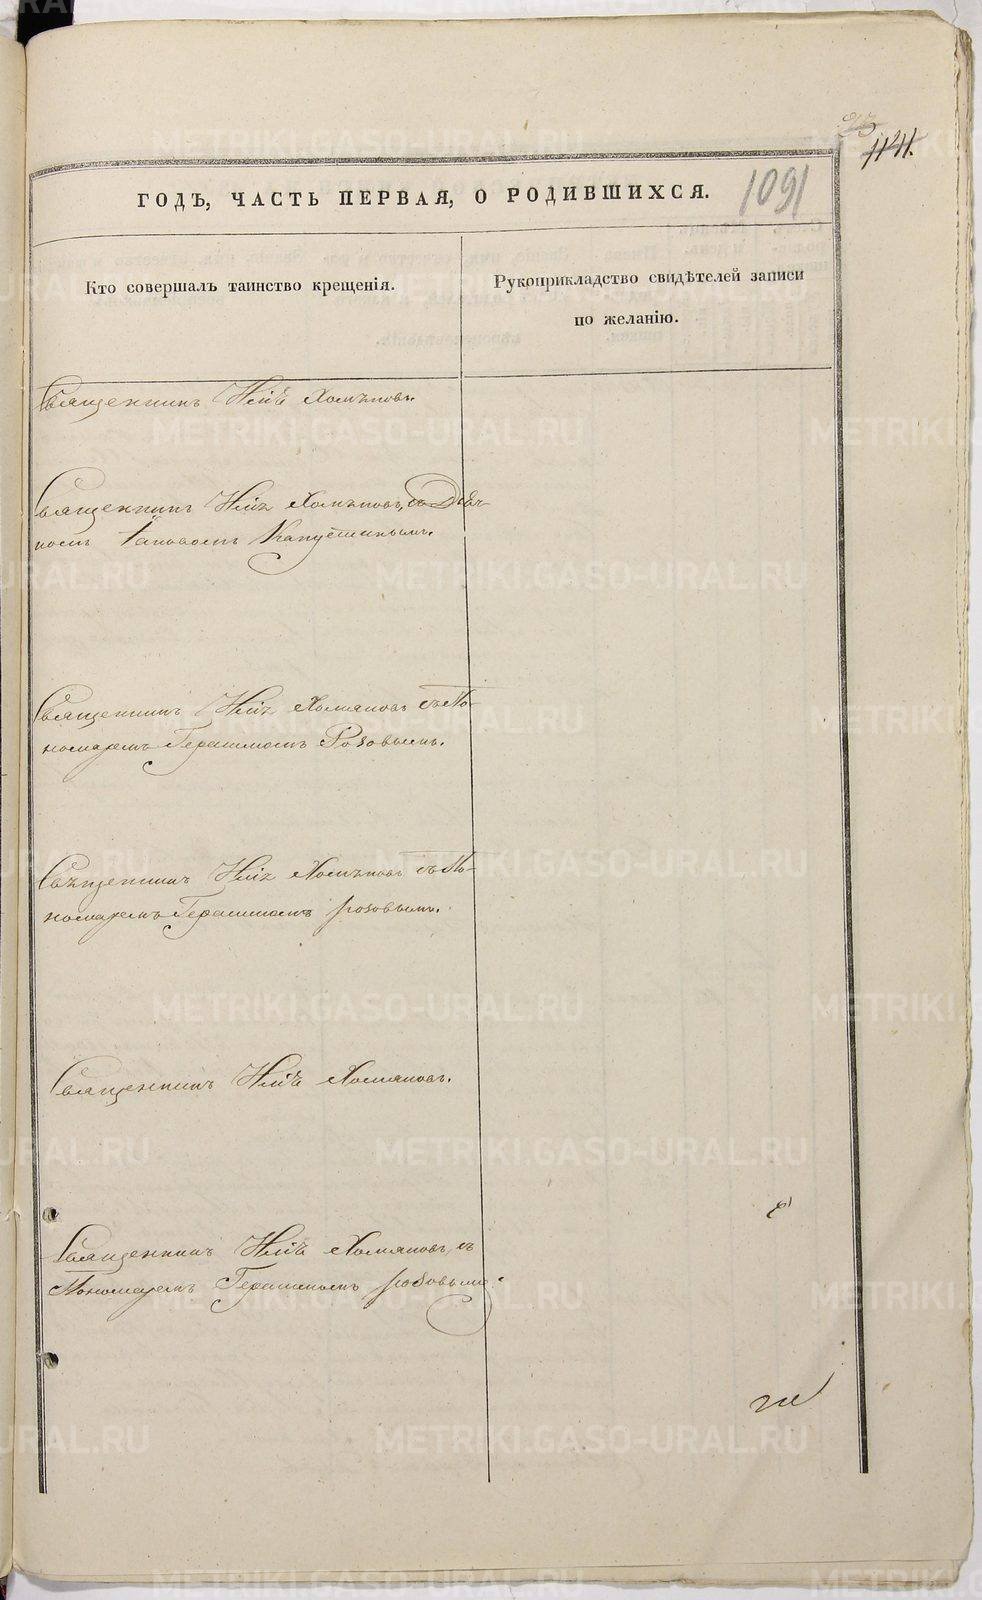 1141.
1091
ГОДЪ, ЧАСТЬ ПЕРВАЯ, О РОДИВШИХСЯ.
Кто совершалъ таинство крещенія.
Рукоприкладство свидѣтелей записи
по желанію.
Священникъ Илія Хомяковъ.
Священникъ Илія Хомяковъ, съ Дьяч-
комъ Іаковомъ Капустинымъ.
Священникъ Илія Хомяковъ съ По-
номаремъ Герасимомъ Розовымъ.
Священникъ Илія Хомяковъ съ По-
номаремъ Герасимомъ Розовымъ.
Священникъ Илія Хомяковъ.
Священникъ Илія Хомяковъ, съ
Пономаремъ Герасимомъ Розовымъ.
METRIKI.GASO-URAL.RU